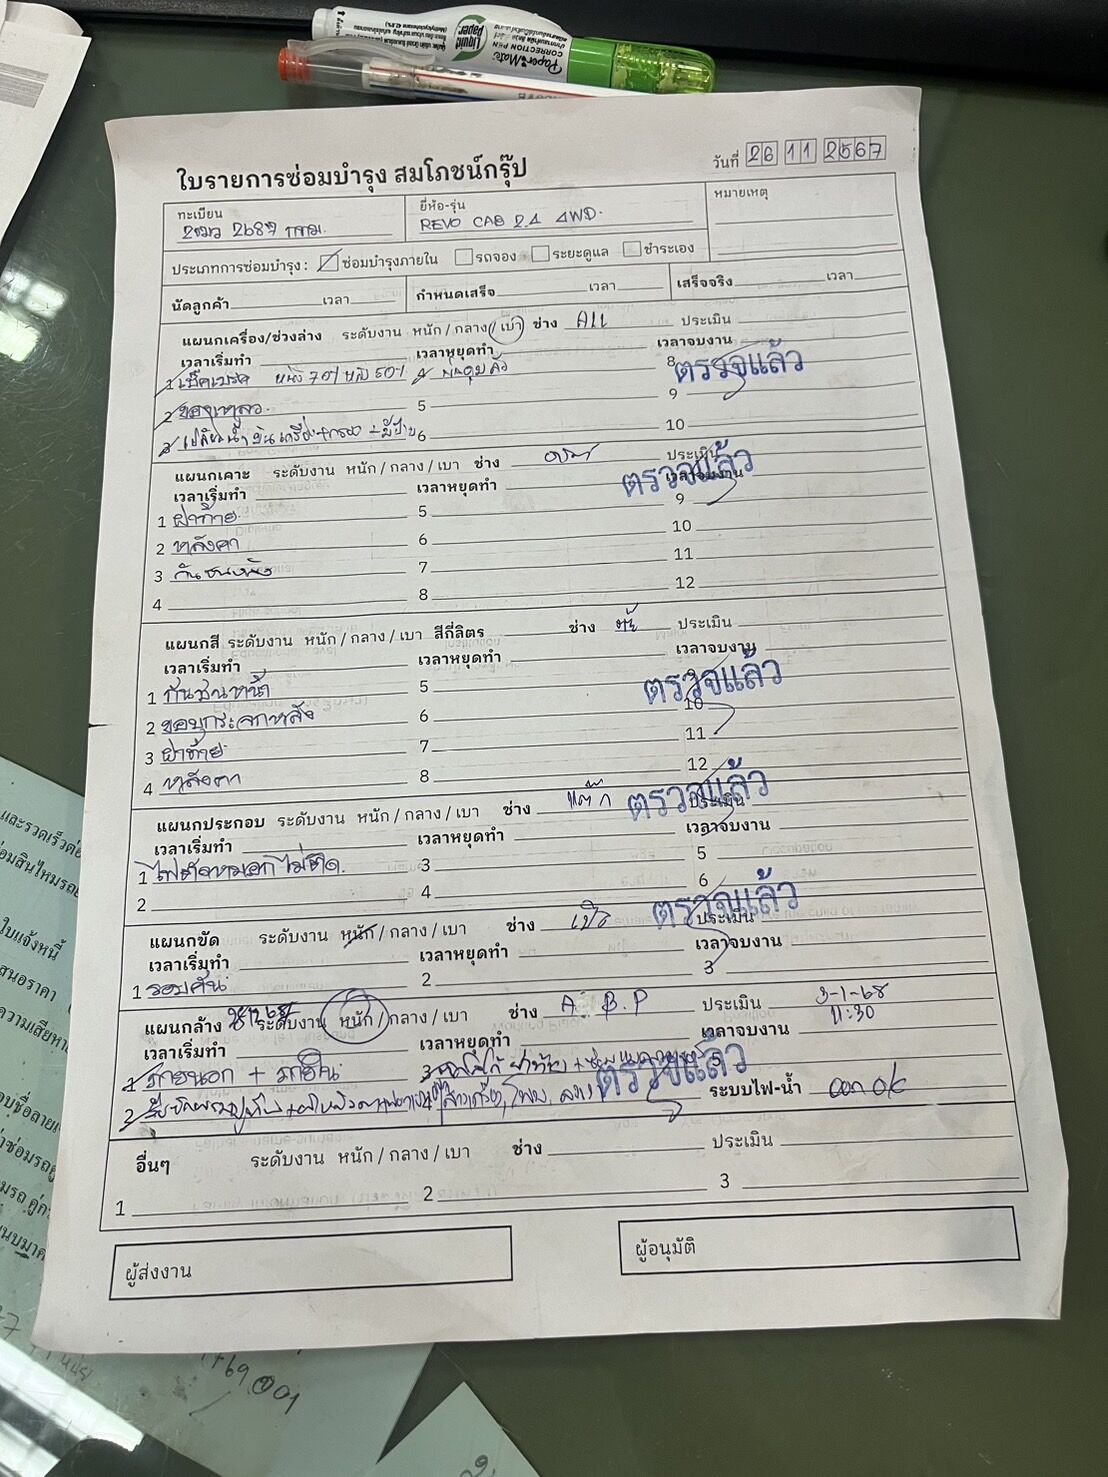 Liquid Paper
Paper Mate
CORRECTION PEN
ใบรายการซ่อมบำรุง สมโภชน์กรุ๊ป
วันที่ 26 11 2567
ทะเบียน
2ฒว 2687 กทม.
ยี่ห้อ-รุ่น
REVO CAB 2.4 4WD.
หมายเหตุ
ประเภทการซ่อมบำรุง : ซ่อมบำรุงภายใน รถจอง ระยะดูแล ชำระเอง
นัดลูกค้า เวลา กำหนดเสร็จ เวลา เสร็จจริง เวลา
แผนกเครื่อง/ช่วงล่าง ระดับงาน หนัก / กลาง / เบา ช่าง All ประเมิน
เวลาเริ่มทำ เวลาหยุดทำ เวลาจบงาน
1 เช็คเบรค หน้า 70% หลัง 50% 4 8 ตรวจแล้ว
2 ของเหลว 5 9
3 เปลี่ยนน้ำมันเครื่อง+กรอง 6 10
แผนกเคาะ ระดับงาน หนัก / กลาง / เบา ช่าง ประเมิน
เวลาเริ่มทำ เวลาหยุดทำ เวลาจบงาน ตรวจแล้ว
1 ฝาท้าย 5 9
2 หลังคา 6 10
3 กันชนหน้า 7 11
4 8 12
แผนกสี ระดับงาน หนัก / กลาง / เบา สีกี่ลิตร ช่าง ประเมิน
เวลาเริ่มทำ เวลาหยุดทำ เวลาจบงาน
1 กันชนหน้า 5 9 ตรวจแล้ว
2 ขอบกระจกหลัง 6 10
3 ฝาท้าย 7 11
4 หลังคา 8 12
แผนกประกอบ ระดับงาน หนัก / กลาง / เบา ช่าง แต๊ก ประเมิน ตรวจแล้ว
เวลาเริ่มทำ เวลาหยุดทำ เวลาจบงาน
1 ไฟตัดหมอกไม่ติด 3 5
2 4 6
แผนกขัด ระดับงาน หนัก / กลาง / เบา ช่าง ประเมิน ตรวจแล้ว
เวลาเริ่มทำ เวลาหยุดทำ เวลาจบงาน
1 รอบคัน 2 3
แผนกล้าง ระดับงาน หนัก / กลาง / เบา ช่าง A. B.P ประเมิน 3-1-68
เวลาเริ่มทำ เวลาหยุดทำ เวลาจบงาน 11:30
1 ภายนอก + ภายใน 3 5 ตรวจแล้ว
2 4 ระบบไฟ-น้ำ
อื่นๆ ระดับงาน หนัก / กลาง / เบา ช่าง ประเมิน
1 2 3
ผู้ส่งงาน
ผู้อนุมัติ
และรวดเร็วต่อ
ใบแจ้งหนี้
สนอราคา